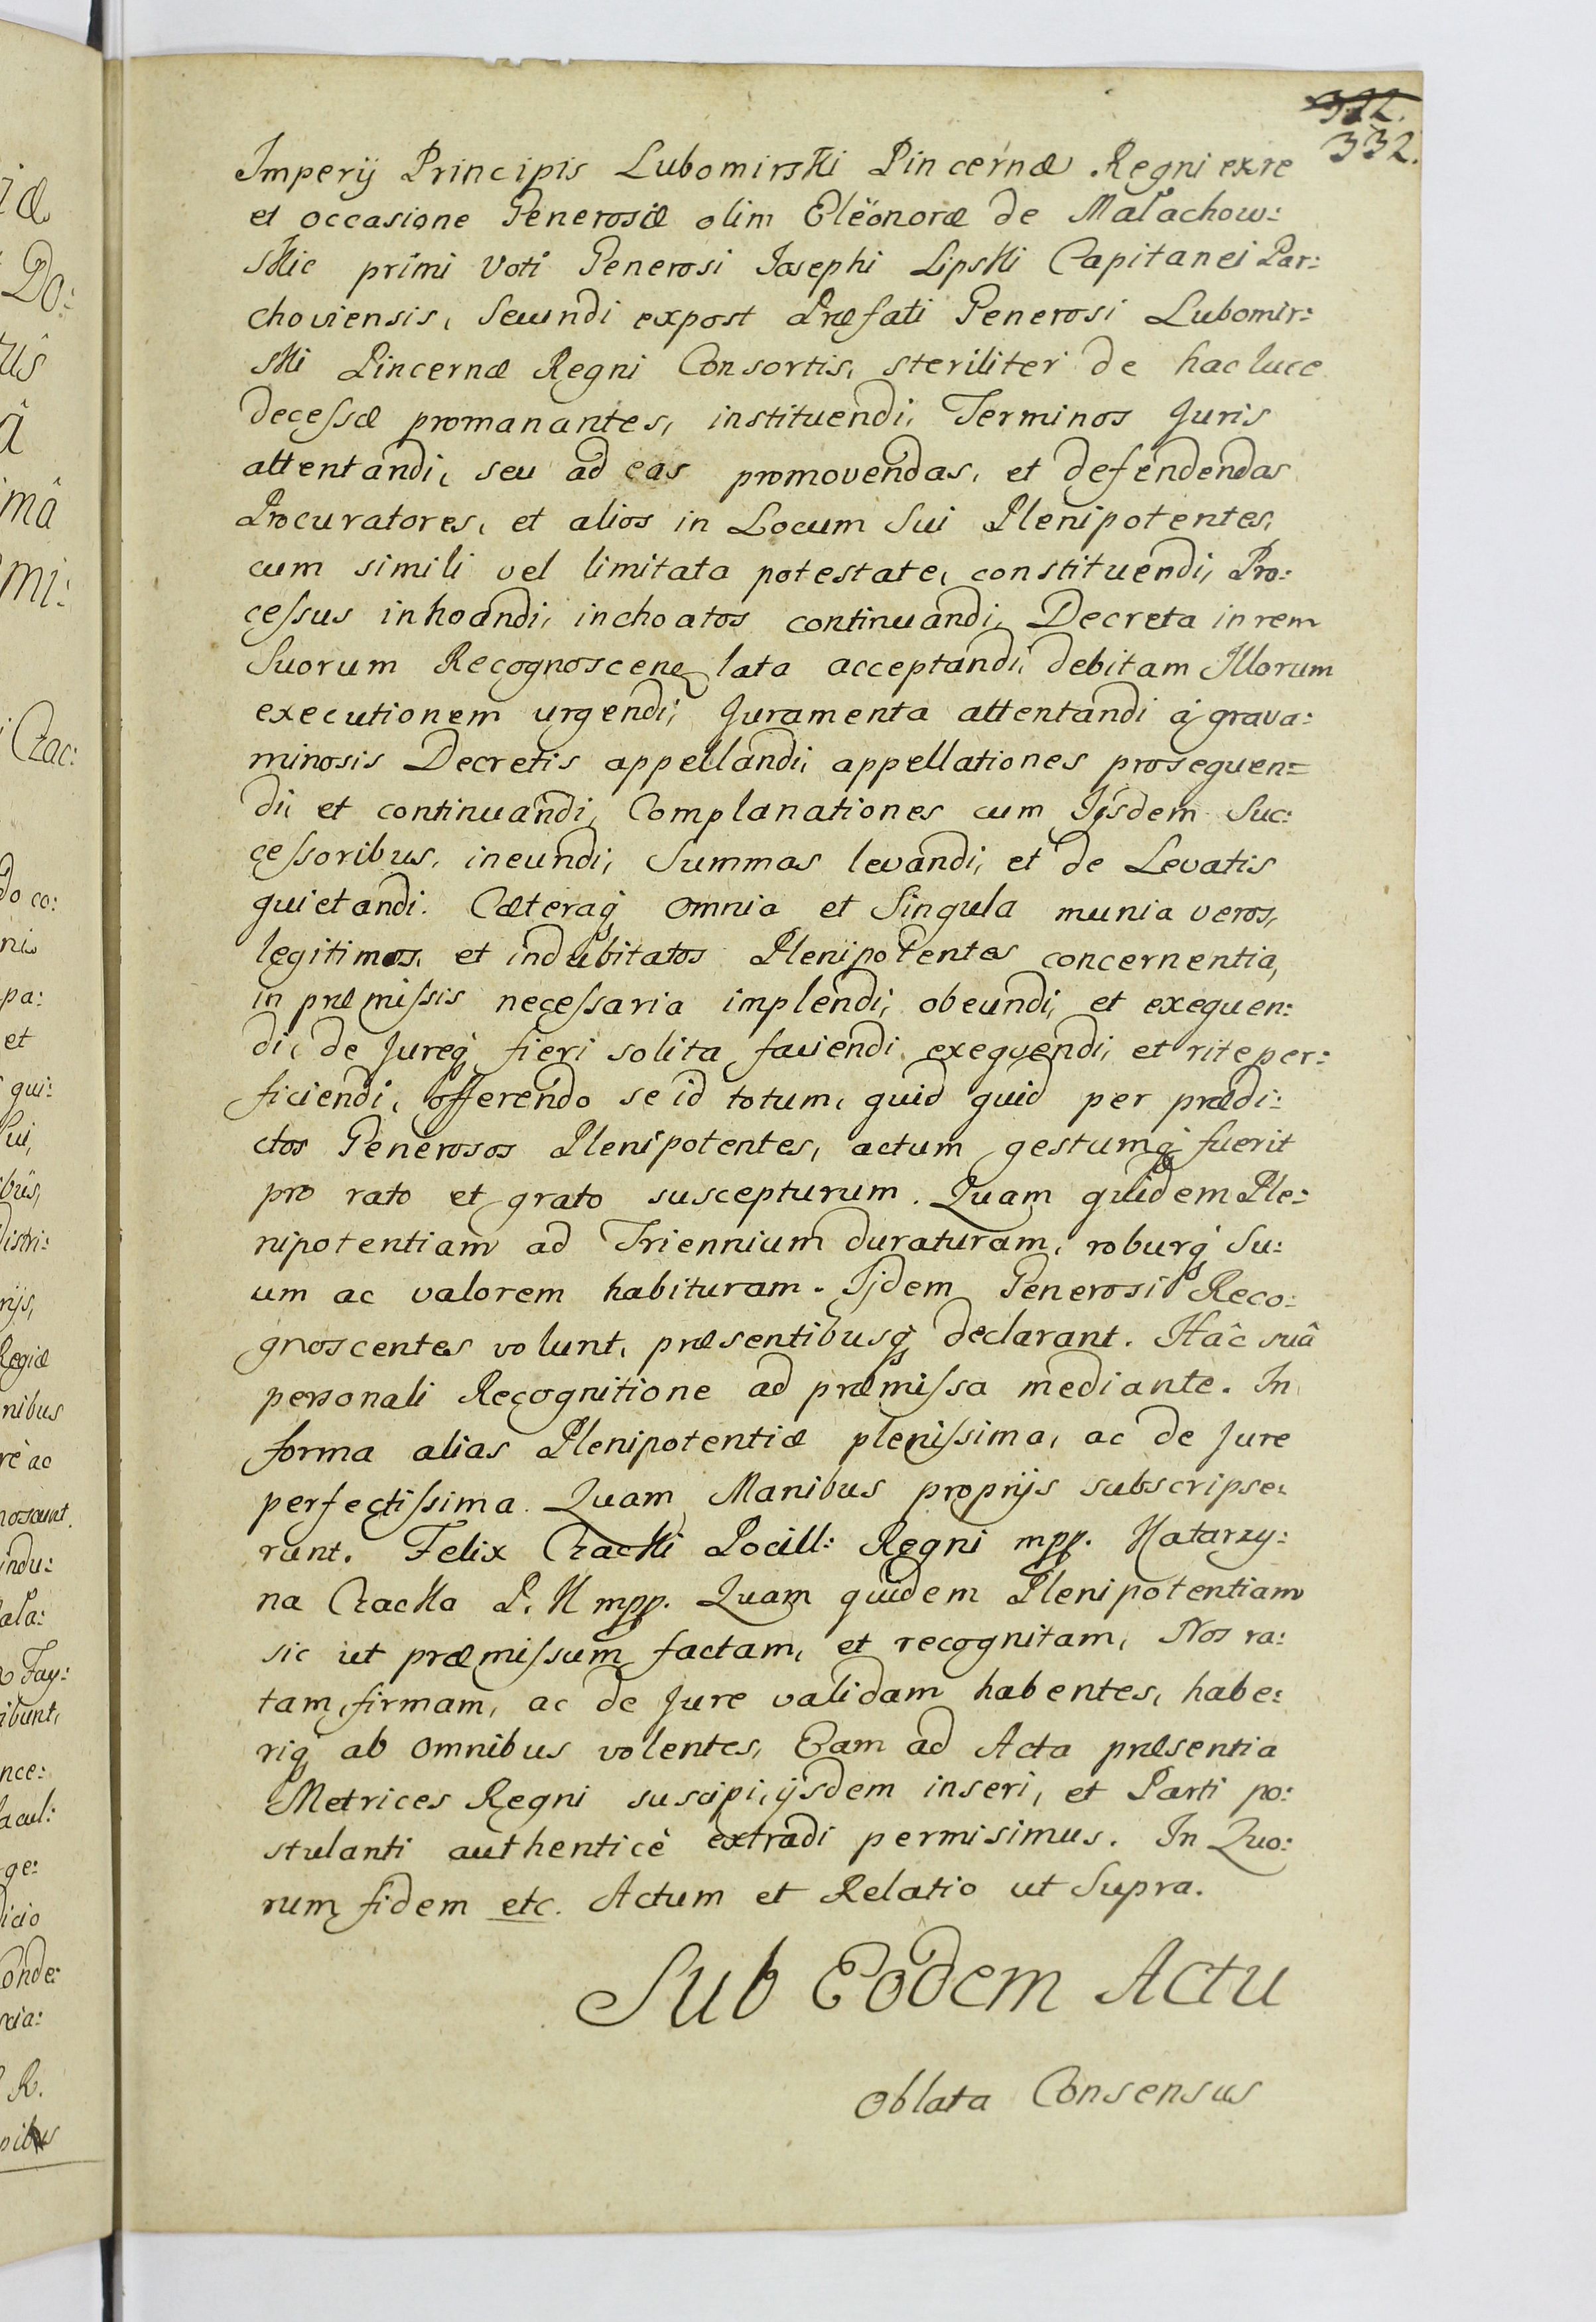 322.
332.
Imperij Principis Lubomirski Pincernæ Regni ex re
et occasione Generosæ olim Eleönoræ de Małachow:
skie primi Voti Generosi Josephi Lipski Capitanei Par:
choviensis, Secundi expost Præfati Generosi Lubomir:
ski Pincernæ Regni Consortis, steriliter de hac luce
decessæ promanantes, instituendi, Terminos Juris
attentandi, seu ad eas promovendas, et defendendas
Procuratores, et alios in Locum Sui Plenipotentes,
cum simili vel limitata potestate, constituendi, Pro:
cessus inhoandi, inchoatos continuandi, Decreta in rem
Suorum Recognoscen lata acceptandi, debitam Illorum
executionem urgendi, Juramenta attentandi à grava:
minosis Decretis appellandi, appellationes prosequen=
di, et continuandi, Complanationes cum Ijsdem Suc:
cessoribus, ineundi, Summas levandi, et de Levatis
quietandi. Cæteraq omnia et Singula munia veros,
legitimos, et indubitatos Plenipotentes concernentia,
in præmissis necessaria implendi, obeundi, et exequen:
di, de Jureq fieri solita faciendi exequendi, et rite per:
ficiendi, offerendo se id totum, quid quid per prædi:
ctos Generosos Plenipotentes, actum gestumq fuerit
pro rato et grato suscepturum. Quam quidem Ple:
nipotentiam ad Triennium duraturam, roburq Su:
um ac valorem habituram. Ijdem Generosi Reco:
gnoscentes volunt, præsentibusq declarant. Hâc suâ
personali Recognitione ad præmissa mediante. In
forma alias Plenipotentiæ plenissima, ac de Jure
perfectissima. Quam Manibus proprijs subscripse:
runt. Felix Czacki Pocill: Regni mpp. Katarzy:
na Czacka P. K mpp. Quam quidem Plenipotentiam
sic ut præmissum factam, et recognitam, Nos ra:
tam, firmam, ac de Jure validam habentes, habe:
riq ab omnibus volentes, Eam ad Acta præsentia
Metrices Regni suscipi, ijsdem inseri, et Parti po:
stulanti authenticè extradi permisimus. In Quo:
rum fidem etc. Actum et Relatio ut Supra.
Sub Eodem Actu
Oblata Consensus